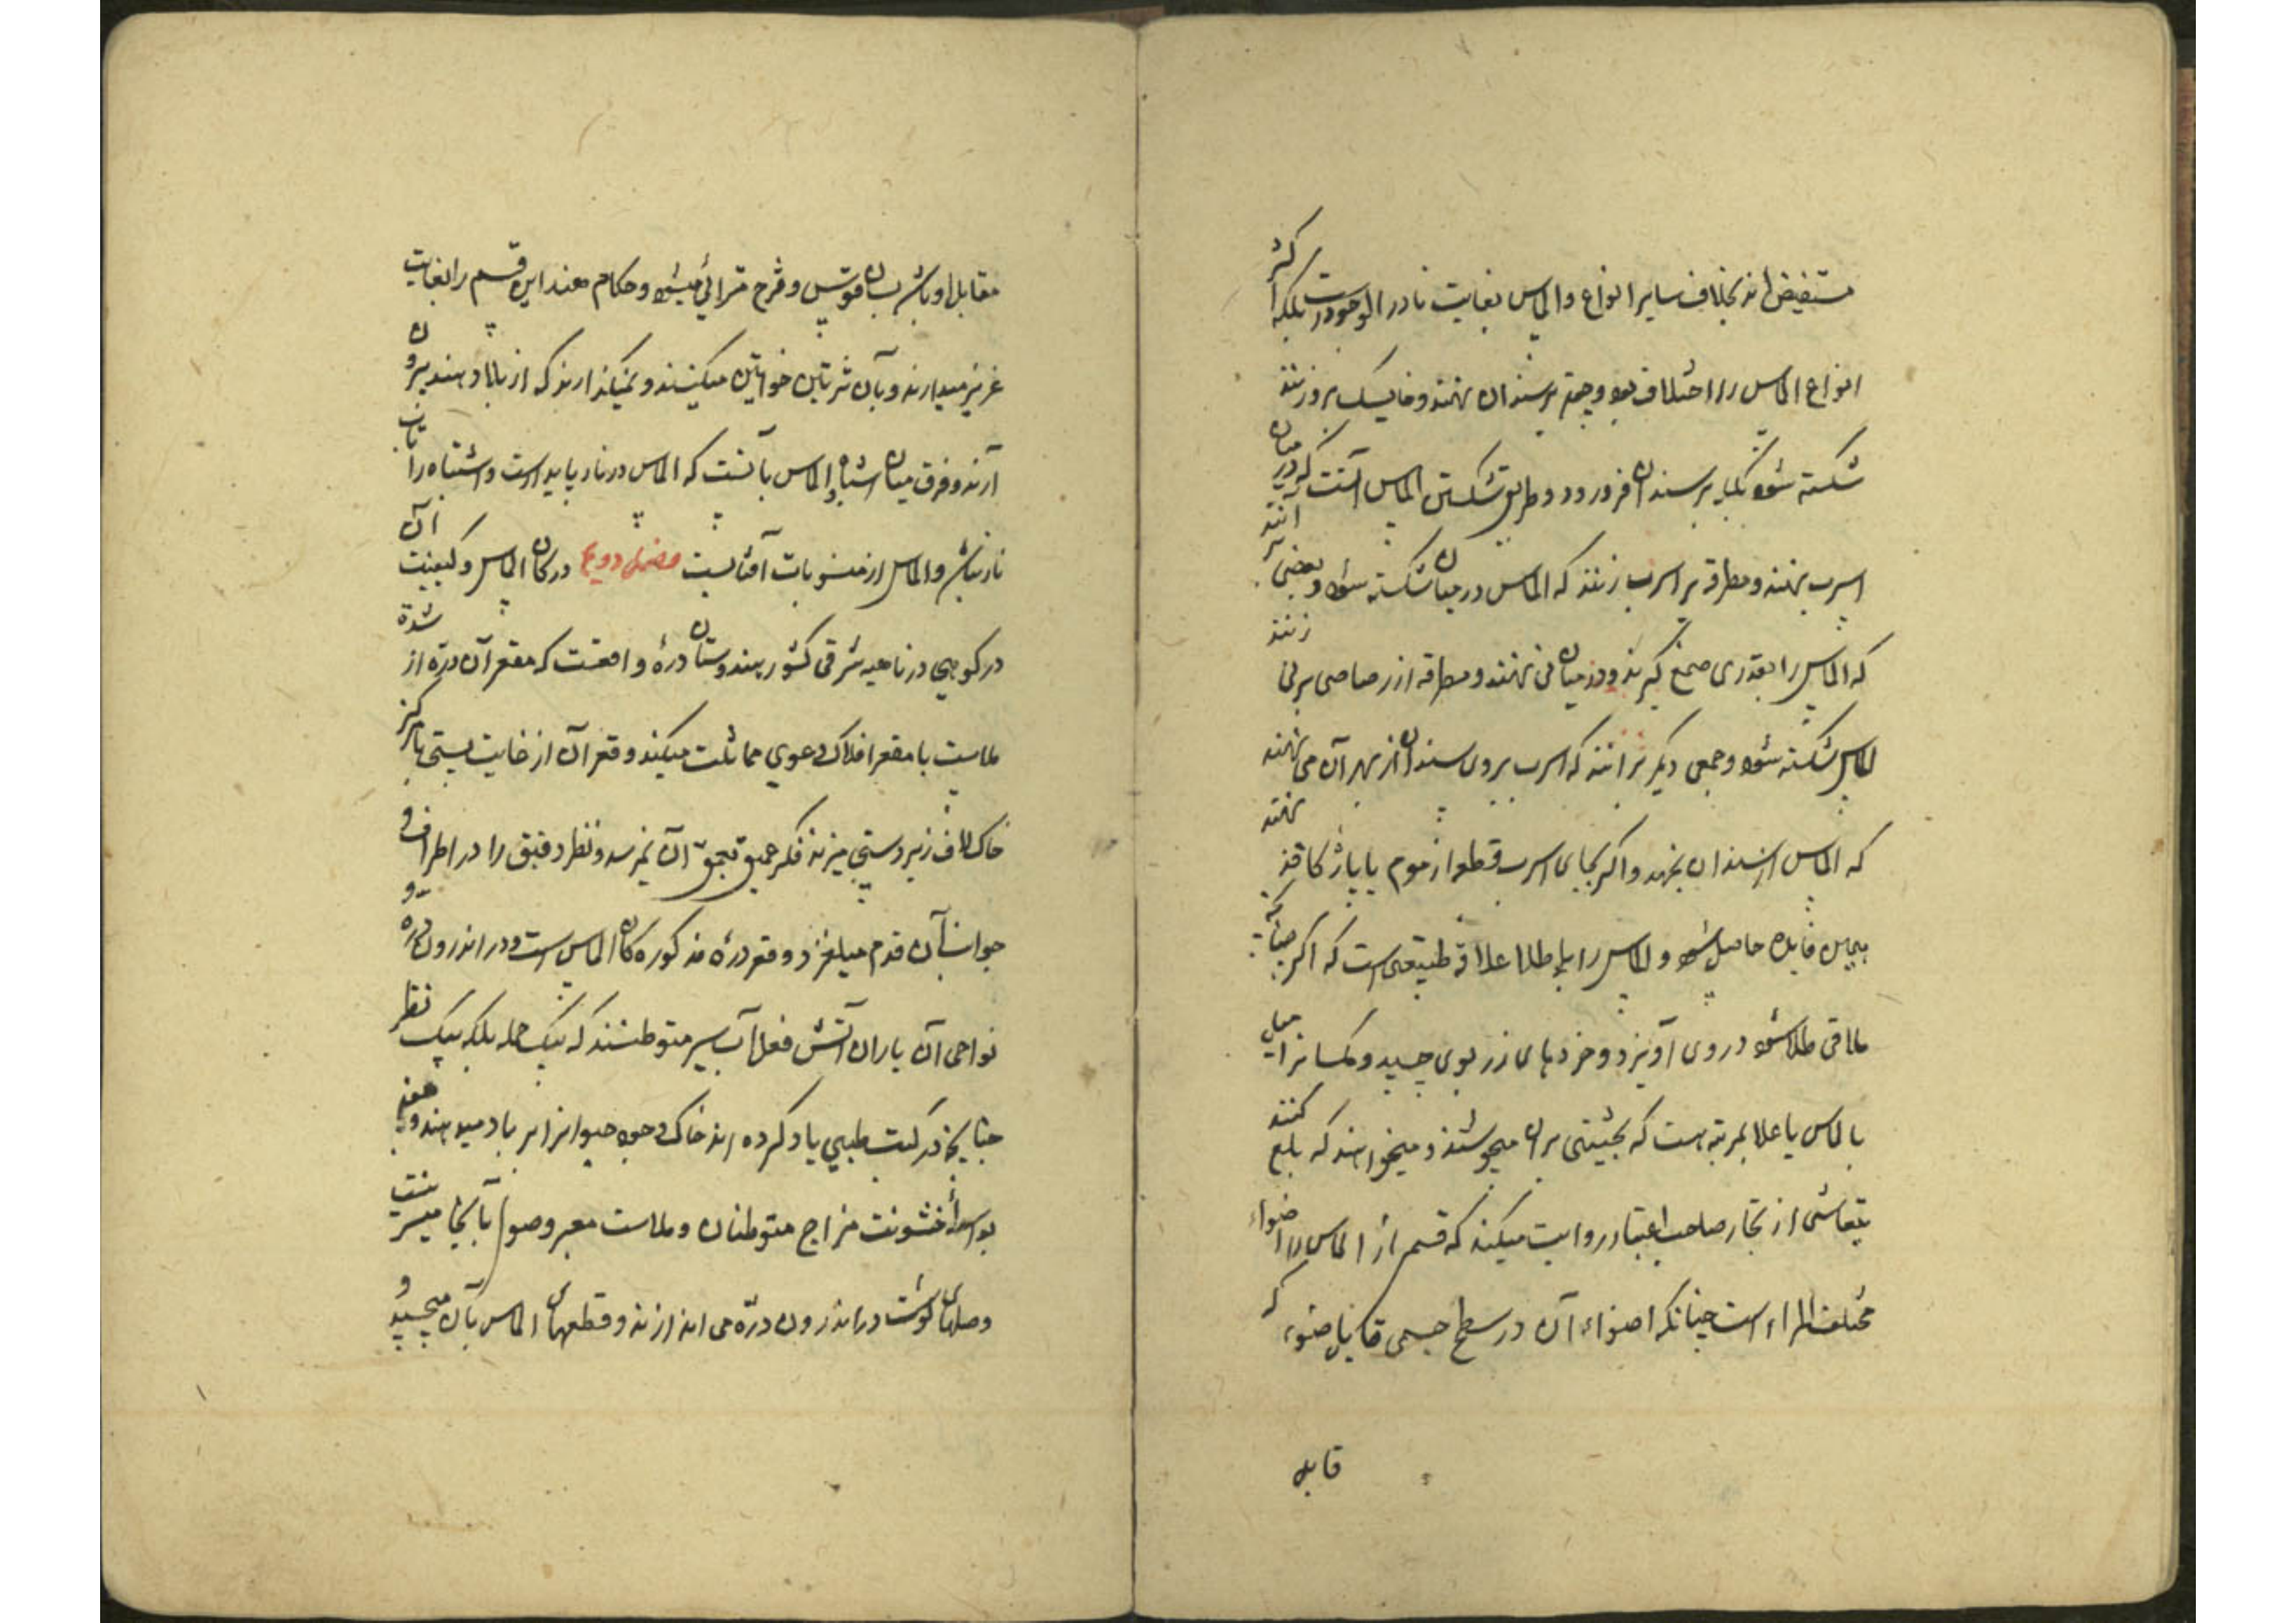 مستفیض اند بخلاف سایر انواع والماس بغایت نادر الوجودست بلکه اکثر
انواع الماس را اختلاف بود و چون بر سندان نهند و خایسک بر وزنند
شکسته شود بلکه بر سندان فرو رود و طریق شکستن الماس آنست که در میان
اسرب نهند و مطرقه بر اسرب زنند که الماس در میان شکسته شود و بعضی بر آنند
که الماس را بقدری صمغ گیرند و در میان نی نهند و مطرقه از رصاصی بر نی زنند
الماس شکسته شود و جمعی دیگر بر آنند که اسرب بر روی سندان از بهر آن می نهند
که الماس از سندان بجهد و اگر بجای اسرب قطعه از موم یا پاره کاغذ نهند
همین فایده حاصل شود و الماس را با طلا علاقه طبیعی است که اگر چنانکه
ملاقی طلا شود در وی آویزد و خردهای زر بوی چسبد و کسانرا میل
بالماس یا علا بمرتبه است که بحیثیتی بران میجوشند و میخواهند که بلع کنند
از تجار صاحب اعتبار روایت میکند که قسم از الماس را اضواء
مختلف المراء است چنانکه اضواء آن در سطح جسمی قابل ضوء که
قابل
مقابل او باشد بسان قوس و قزح مترائی میشود و حکام هند این قسم را بغایت
عزیز میدارند و بآن شرتاین خواتین میکنند و نمیگذارند که از بلاد هند بیرون
آرند و فرق میان اشباه والماس بآنست که الماس در نار پایدارست و اشتباه را تاب
نار نباشد والماس از منسوبات آفتابست فصل دویم در کان الماس و کیفیت آن
در کوهی در ناحیه شرقی کشور هندوستان درهٔ واقعست که مقعر آن دره از شدة
ملاست با مقعر افلاک دعوی مماثلت میکند و قعر آن از غایت پستی با مرکز
خاک لاف زیردستی میزند فکر عمیق بعمق آن نمیرسد و نظر دقیق را در اطراف و
جوانب آن قدم میلغزد و قعر درهٔ مذکوره کان الماس است و در اندرون دره و
نواحی آن یاران آتش فعل آب سیر متوطنند که بیک حمله بلکه بیک نظر
چنانچه در کتب طبی یاد کرده اند خاک وجود حیوانرا بر باد میدهند و
بواسطهٔ خشونت مزاج متوطنان و ملاست معبر وصول بآنجا میسر نیست
وصلهای گوشت در اندرون دره می اندازند و قطعهای الماس بآن میچسپد و